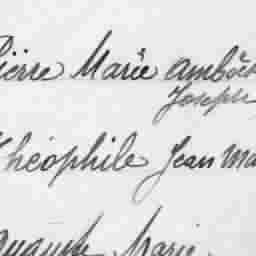 Pierre Marie Ambroi
Joseph
Théophile Jean Ma
Marie